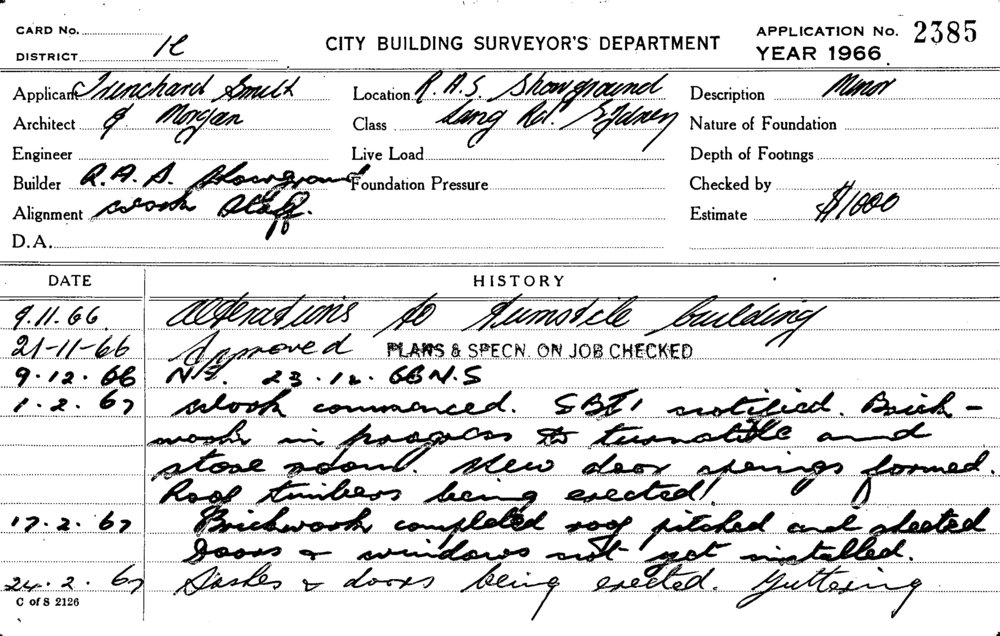 CARD No.
DISTRICT 1C
CITY BUILDING SURVEYOR'S DEPARTMENT
APPLICATION No. 2385
YEAR 1966
Applicant Trenchard Smith
Architect & Morgan
Engineer
Builder R.A.S. Showground
Alignment work Staff.
D.A.
Location R.A.S. Showground
Class Lang Rd. Sydney
Live Load
Foundation Pressure
Description Minor
Nature of Foundation
Depth of Footings
Checked by
Estimate $1000
DATE HISTORY
9.11.66 Alterations to turnstile building
21-11-66 Approved PLANS & SPECN. ON JOB CHECKED
9.12.66 N.S. 23.12.66 N.S
1.2.67 Work commenced. SBI notified. Brick-
work in progress to turnstile and
store room. New door openings formed.
Roof timbers being erected.
17.2.67 Brickwork completed roof pitched and sheeted
Doors & windows not yet installed.
24.2.67 Sashes & doors being erected. Guttering
C of S 2126